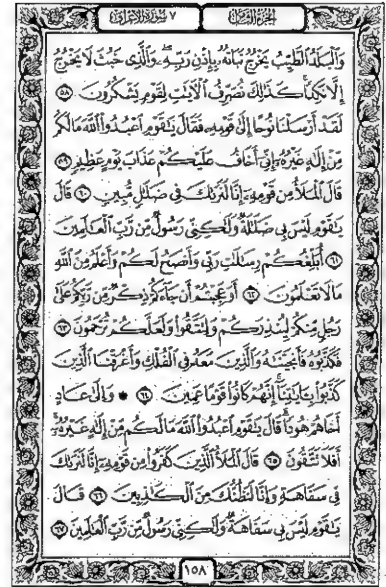 الجزء الثامن ٧ سورة الأعراف
وَٱلْبَلَدُ ٱلطَّيِّبُ يَخْرُجُ نَبَاتُهُۥ بِإِذْنِ رَبِّهِۦ ۖ وَٱلَّذِى خَبُثَ لَا يَخْرُجُ
إِلَّا نَكِدًا ۚ كَذَٰلِكَ نُصَرِّفُ ٱلْـَٔايَٰتِ لِقَوْمٍ يَشْكُرُونَ ٥٨
لَقَدْ أَرْسَلْنَا نُوحًا إِلَىٰ قَوْمِهِۦ فَقَالَ يَٰقَوْمِ ٱعْبُدُوا۟ ٱللَّهَ مَا لَكُم
مِّنْ إِلَٰهٍ غَيْرُهُۥٓ إِنِّىٓ أَخَافُ عَلَيْكُمْ عَذَابَ يَوْمٍ عَظِيمٍ ٥٩
قَالَ ٱلْمَلَأُ مِن قَوْمِهِۦٓ إِنَّا لَنَرَىٰكَ فِى ضَلَٰلٍ مُّبِينٍ ٦٠ قَالَ
يَٰقَوْمِ لَيْسَ بِى ضَلَٰلَةٌ وَلَٰكِنِّى رَسُولٌ مِّن رَّبِّ ٱلْعَٰلَمِينَ
٦١ أُبَلِّغُكُمْ رِسَٰلَٰتِ رَبِّى وَأَنصَحُ لَكُمْ وَأَعْلَمُ مِنَ ٱللَّهِ
مَا لَا تَعْلَمُونَ ٦٢ أَوَعَجِبْتُمْ أَن جَآءَكُمْ ذِكْرٌ مِّن رَّبِّكُمْ عَلَىٰ
رَجُلٍ مِّنكُمْ لِيُنذِرَكُمْ وَلِتَتَّقُوا۟ وَلَعَلَّكُمْ تُرْحَمُونَ ٦٣
فَكَذَّبُوهُ فَأَنجَيْنَٰهُ وَٱلَّذِينَ مَعَهُۥ فِى ٱلْفُلْكِ وَأَغْرَقْنَا ٱلَّذِينَ
كَذَّبُوا۟ بِـَٔايَٰتِنَآ ۚ إِنَّهُمْ كَانُوا۟ قَوْمًا عَمِينَ ٦٤ ۞ وَإِلَىٰ عَادٍ
أَخَاهُمْ هُودًا ۗ قَالَ يَٰقَوْمِ ٱعْبُدُوا۟ ٱللَّهَ مَا لَكُم مِّنْ إِلَٰهٍ غَيْرُهُۥٓ ۚ
أَفَلَا تَتَّقُونَ ٦٥ قَالَ ٱلْمَلَأُ ٱلَّذِينَ كَفَرُوا۟ مِن قَوْمِهِۦٓ إِنَّا لَنَرَىٰكَ
فِى سَفَاهَةٍ وَإِنَّا لَنَظُنُّكَ مِنَ ٱلْكَٰذِبِينَ ٦٦ قَالَ
يَٰقَوْمِ لَيْسَ بِى سَفَاهَةٌ وَلَٰكِنِّى رَسُولٌ مِّن رَّبِّ ٱلْعَٰلَمِينَ ٦٧
١٥٨